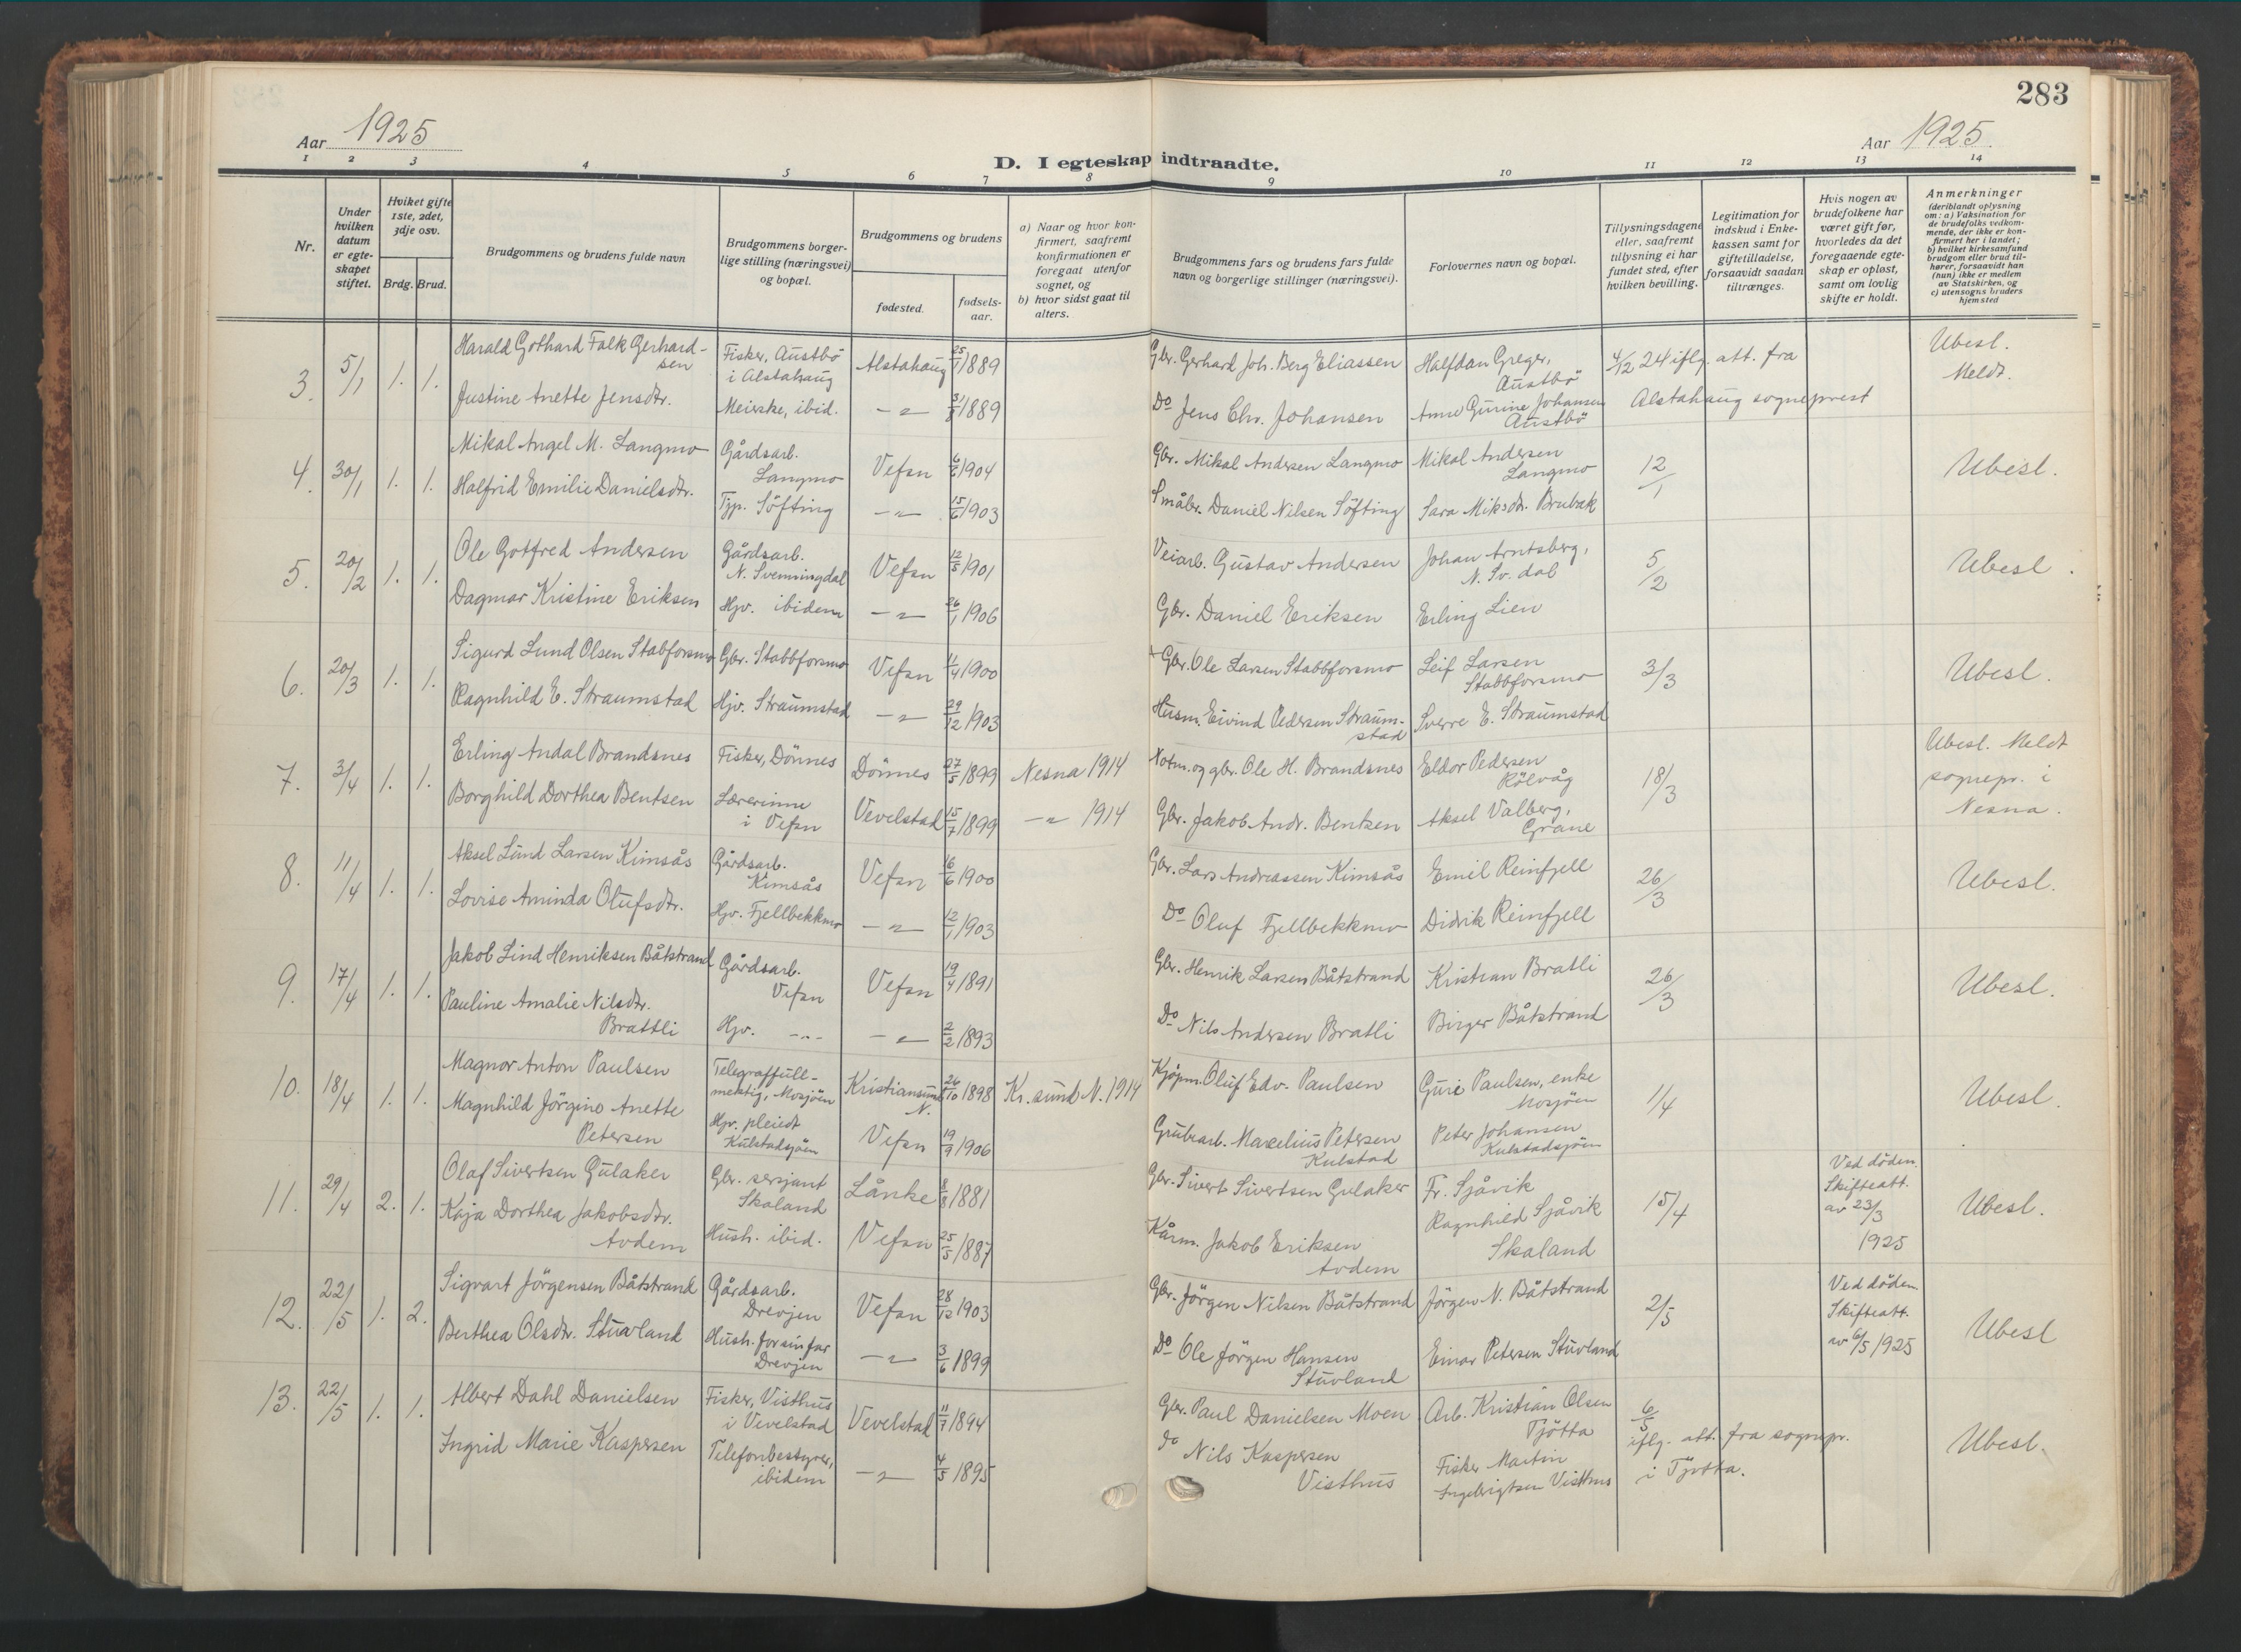 283
Aar 1925
Aar 1925.
D. I egteskap indtraadte.
1 2 3 4 5 6 7 8 9 10 11 12 13 14
Nr.
Under hvilken datum er egteskapet stiftet.
Hviket gifte 1ste, 2det, 3dje osv.
Brdg. Brud.
Brudgommens og brudens fulde navn
Brudgommens borgerlige stilling (næringsvei) og bopæl.
Brudgommens og brudens
fødested.
fødselsaar.
a) Naar og hvor konfirmert, saafremt konfirmationen er foregaat utenfor sognet, og
b) hvor sidst gaat til alters.
Brudgommens fars og brudens fars fulde navn og borgerlige stillinger (næringsvei).
Forlovernes navn og bopæl.
Tillysningsdagene eller, saafremt tillysning ei har fundet sted, efter hvilken bevilling.
Legitimation for indskud i Enkekassen samt for giftetilladelse, forsaavidt saadan tiltrænges.
Hvis nogen av brudefolkene har været gift før, hvorledes da det foregaaende egteskap er opløst, samt om lovlig skifte er holdt.
Anmerkninger
(deriblandt oplysning om: a) Vaksination for de brudefolks vedkommende, der ikke er konfirmert her i landet; b) hvilket kirkesamfund brudgom eller brud tilhører, forsaavidt han (hun) ikke er medlem av Statskirken, og c) utensogns bruders hjemsted
3. 5/1 1. 1. Harald Gothard Falk Gerhardsen Fisker, Austbö i Alstahaug Alstahaug 25/1 1889 Gbr. Gerhard Joh. Berg Eliassen Halfdan Greger, Austbö 4/12 24 iflg. att. fra Ubesl. Meldt.
Justine Anette Jensdtr. Meierske, ibid. —"— 1889 Do Jens Chr. Johansen Anne Gurine Johansen Austbö Alstahaug sogneprest
4. 30/1 1. 1. Mikal Angel M. Langmo Gårdsarb. Langmo Vefsn 6/6 1904 Gbr. Mikal Andersen Langmo Mikal Andersen Langmo 12/1 Ubesl.
Halfrid Emilie Danielsdtr. Söfting —"— 15/6 1903 Småbr. Daniel Nilsen Söfting Sara Miksdtr. Brubak
5. 20/2 1. 1. Ole Gotfred Andersen Gårdsarb. N. Svenningdal Vefsn 12/5 1901 Veiarb. Gustav Andersen Johan Arntsberg, N. Sv. dal 5/2 Ubesl.
Dagmar Kristine Eriksen Hjv. ibidem —"— 26/1 1906 Gbr. Daniel Eriksen Erling Lien
6. 20/3 1. 1. Sigurd Lund Olsen Stabforsmo Gbr. Stabbforsmo Vefsn 11/4 1900 Gbr. Ole Larsen Stabbforsmo Leif Larsen Stabbforsmo 3/3 Ubesl.
Ragnhild E. Straumstad Hjv. Straumstad —"— 29/12 1903 Husm. Eivind Pedersen Straumstad Sverre E. Straumstad
7. 3/4 1. 1. Erling Andal Brandsnes Fisker, Dönnes Dönnes 27/5 1899 Nesna 1914 Notm. og gbr. Ole H. Brandsnes Eldor Pedersen Rölvåg 18/3 Ubesl. Meldt sognepr. i Nesna.
Borghild Dorthea Bentsen Lærerinne i Vefsn Vevelstad 15/7 1899 —"— 1914 Gbr. Jakob Andr. Bentsen Aksel Valberg, Grane
8. 11/4 1. 1. Aksel Lund Larsen Kimsås Gårdsarb. Kimsås Vefsn 16/6 1900 Gbr. Lars Andreassen Kimsås Emil Reinfjell 26/3 Ubesl.
Lovise Aminda Olufsdtr. Hjv. Fjellbekkmo —"— 12/1 1903 Do Oluf Fjellbekkmo Didrik Reinfjell
9. 17/4 1. 1. Jakob Lind Henriksen Båtstrand Gårdsarb. Vefsn Vefsn 19/4 1891 Gbr. Henrik Larsen Båtstrand Kristian Bratli 26/3 Ubesl.
Pauline Amalie Nilsdtr. Brattli Hjv. —"— —"— 2/2 1893 Do Nils Andersen Bratli Birger Båtstrand
10. 18/4 1. 1. Magnor Anton Paulsen Telegraffullmektig, Mosjöen Kristiansund N. 26/10 1898 Kr.sund N. 1914 Kjöpm. Oluf Edv. Paulsen Guri Paulsen, enke Mosjöen 1/4 Ubesl.
Magnhild Jörgine Anette Petersen Hjv. pleiedt Kulstadsjöen Vefsn 19/9 1906 Grubearb. Marselius Petersen Kulstad Peter Johansen Kulstadsjöen
11. 29/4 2. 1. Olaf Sivertsen Gulaker Gbr. sersjant Skaland Lånke 8/8 1881 Gbr. Sivert Sivertsen Gulaker Fr. Sjåvik 15/4 Ved döden. Skifteatt. av 23/3 1925 Ubesl.
Kaja Dorthea Jakobsdtr. Avdem Hush. ibid. Vefsn 25/5 1887 Kårm. Jakob Eriksen Avdem Ragnhild Sjåvik Skaland
12. 22/5 1. 2. Sigvart Jörgensen Båtstrand Gårdsarb. Drevjen Vefsn 28/12 1903 Gbr. Jörgen Nilsen Båtstrand Jörgen N. Båtstrand 2/5 Ved döden Skifteatt. av 6/5 1925 Ubesl
Berthea Olsdtr. Stuvland Hush. for sin far Drevjen —"— 3/6 1899 Do Ole Jörgen Hansen Stuvland Einar Petersen Stuvland
13. 22/5 1. 1. Albert Dahl Danielsen Fisker, Visthus i Vevelstad Vevelstad 11/7 1894 Gbr. Paul Danielsen Moen Arb. Kristian Olsen Tjötta 6/5 iflg. att. fra sognepr. i Tjötta. Ubesl.
Ingrid Marie Kaspersen Telefonbestyrer, ibidem —"— 4/5 1895 do Nils Kaspersen Visthus Fisker Martin Ingebrigtsen Visthus